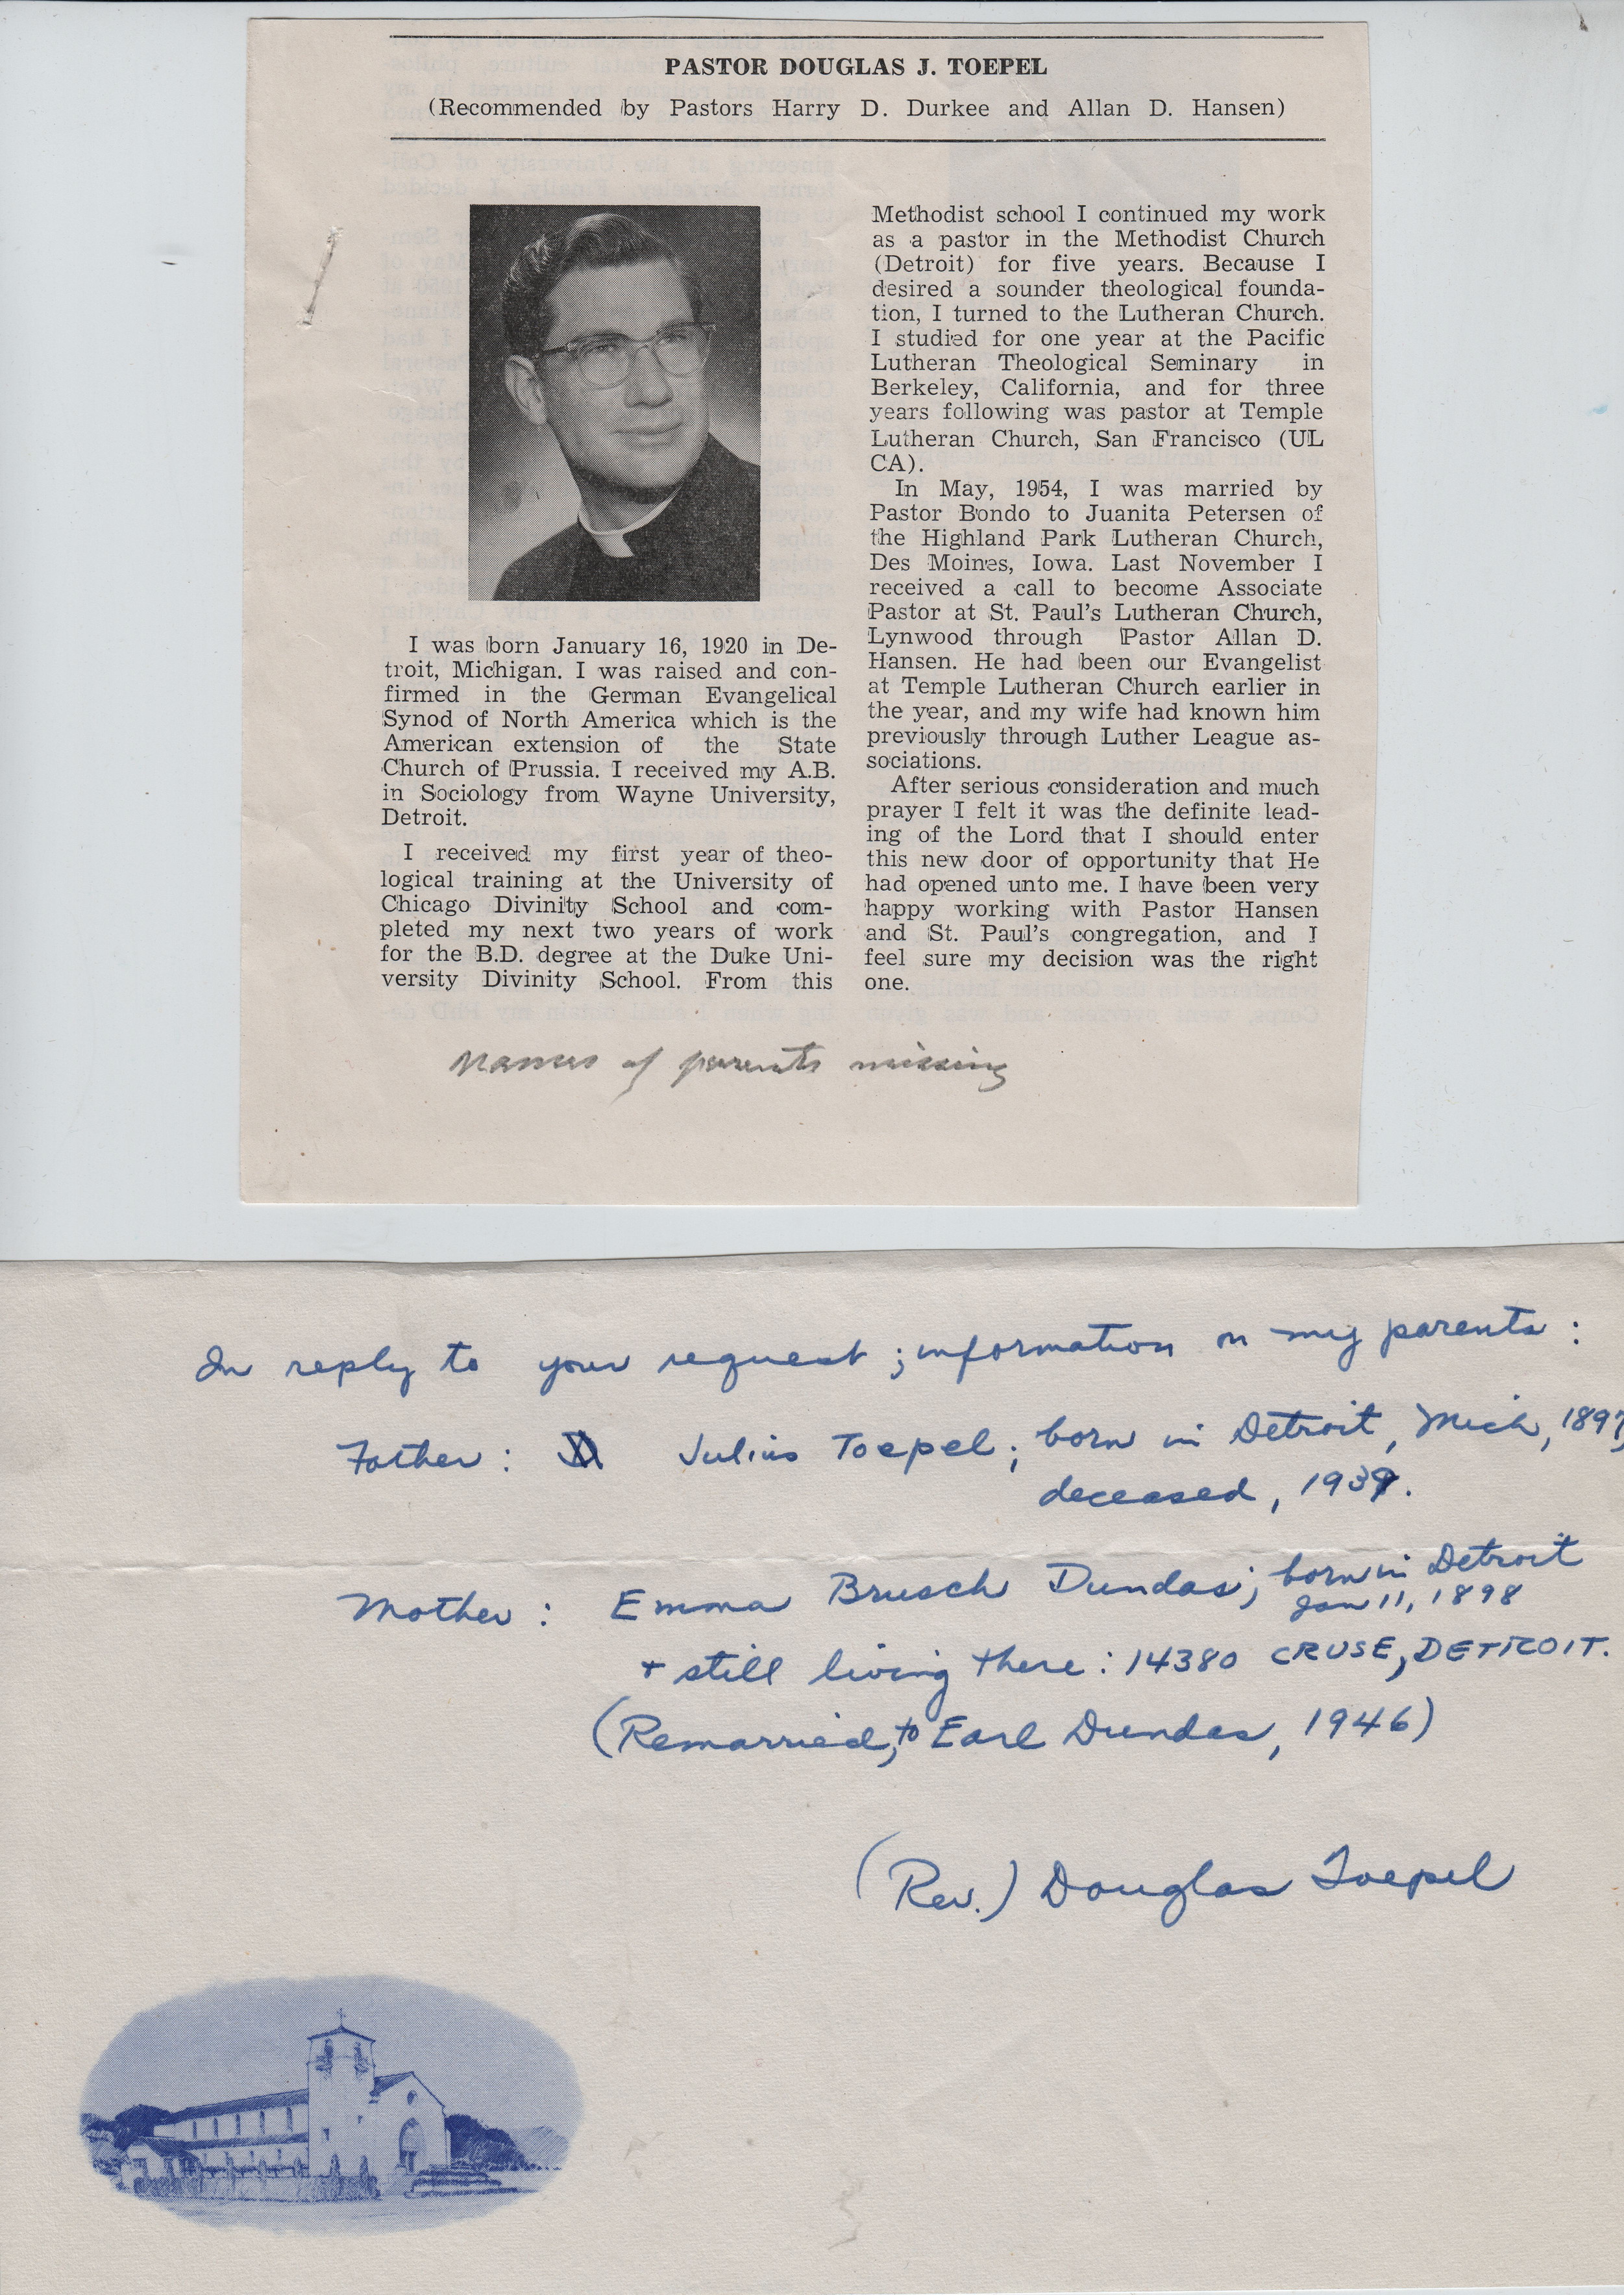 PASTOR DOUGLAS J. TOEPEL
(Recommended by Pastors Harry D. Durkee and Allan D. Hansen)
I was born January 16, 1920 in De-
troit, Michigan. I was raised and con-
firmed in the German Evangelical
Synod of North America which is the
American extension of the State
Church of Prussia. I received my A.B.
in Sociology from Wayne University,
Detroit.
I received my first year of theo-
logical training at the University of
Chicago Divinity School and com-
pleted my next two years of work
for the B.D. degree at the Duke Uni-
versity Divinity School. From this
Methodist school I continued my work
as a pastor in the Methodist Church
(Detroit) for five years. Because I
desired a sounder theological founda-
tion, I turned to the Lutheran Church.
I studied for one year at the Pacific
Lutheran Theological Seminary in
Berkeley, California, and for three
years following was pastor at Temple
Lutheran Church, San Francisco (UL
CA).
In May, 1954, I was married by
Pastor Bondo to Juanita Petersen of
the Highland Park Lutheran Church,
Des Moines, Iowa. Last November I
received a call to become Associate
Pastor at St. Paul's Lutheran Church,
Lynwood through Pastor Allan D.
Hansen. He had been our Evangelist
at Temple Lutheran Church earlier in
the year, and my wife had known him
previously through Luther League as-
sociations.
After serious consideration and much
prayer I felt it was the definite lead-
ing of the Lord that I should enter
this new door of opportunity that He
had opened unto me. I have been very
happy working with Pastor Hansen
and St. Paul's congregation, and I
feel sure my decision was the right
one.
Names of parents missing
In reply to your request; information on my parents:
Father: Julius Toepel; born in Detroit, Mich, 1897,
deceased, 1939.
Mother: Emma Brusch Dundas; born in Detroit
Jan 11, 1898
+ still living there: 14380 CRUSE, DETROIT.
(Remarried, to Earl Dundas, 1946)
(Rev.) Douglas Toepel